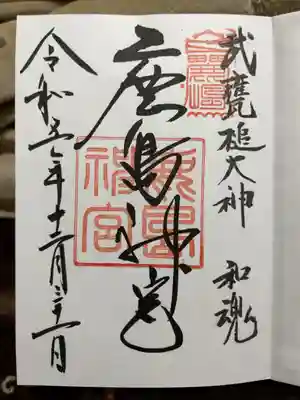 武甕槌大神 和魂
鹿島神宮
鹿島
神宮
令和五年十二月三十一日